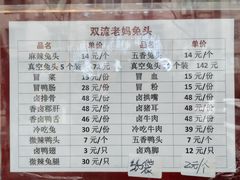 双流老妈兔头
品名 单价 品名 单价
麻辣兔头 14 元/个 五香兔头 14 元/个
真空兔头 5 个装 71 元 真空兔头 个装 142 元
冒菜 15 元/份 冒血 15 元/份
冒鸭肠 28 元/份 冒粉 15 元/份
卤排骨 48 元/份 卤拱嘴 48 元/份
香卤郡肝 48 元/份 卤猪耳 48 元/份
香卤鸭舌 48 元/份 卤牛肉 48 元/份
冷吃兔 30 元/份 冷吃牛肉 39 元/份
微辣鸭头 7 元/个 五香鸭头 7 元/个
卤鸭翅 3 元/只 卤鸡脚 12 元/只
微辣兔腿 30 元/只 2元/个